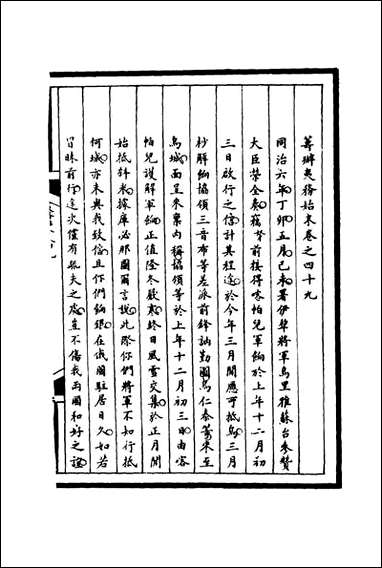 籌辦夷務始末卷之四十九
同治六年丁卯五月己未署伊犂將軍烏里雅蘇台參贊
大臣榮全奏竊前接得喀帕兒軍餉於上年十二月初
三日啟行之信計其程途於今年三月間應可抵烏三月
杪解餉協領三音布等差派前鋒訥勒圖烏仁泰等來至
烏城面呈來稟內稱協領等於上年十二月初三日由喀
帕兒護解軍餉正值隆冬嚴寒終日風雪交集於正月間
始抵斜米據庫必那圖爾言說此際你們將軍不知行抵
何城亦未與我致信且你們餉銀在俄國駐居日久如若
冒昧前行途次倘有疏失之處豈不傷我兩國和好之誼